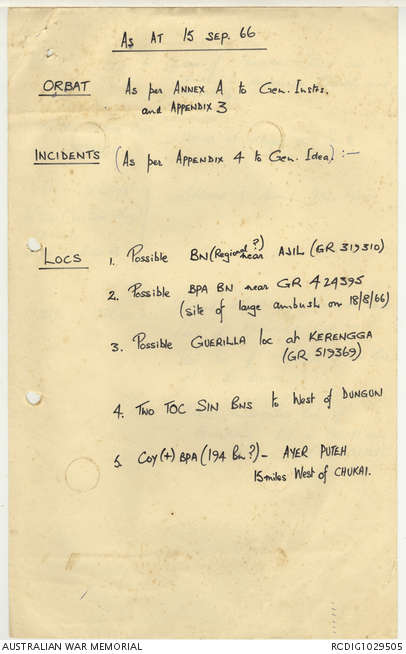 As AT 15 SEP. 66
ORBAT As per ANNEX A to Gen. Instrs.
and APPENDIX 3
INCIDENTS (As per APPENDIX 4 to Gen. Idea) :-
LOCS 1. Possible BN (Regional?) near AJIL (GR 319310)
2. Possible BPA BN near GR 424395
(site of large ambush on 18/8/66)
3. Possible GUERILLA loc at KERENGGA
(GR 519369)
4. TWO TOC SIN BNS to West of DUNGUN
5. COY (+) BPA (194 Bn?) - AYER PUTEH
15 miles West of CHUKAI.
AUSTRALIAN WAR MEMORIAL
RCDIG1029505